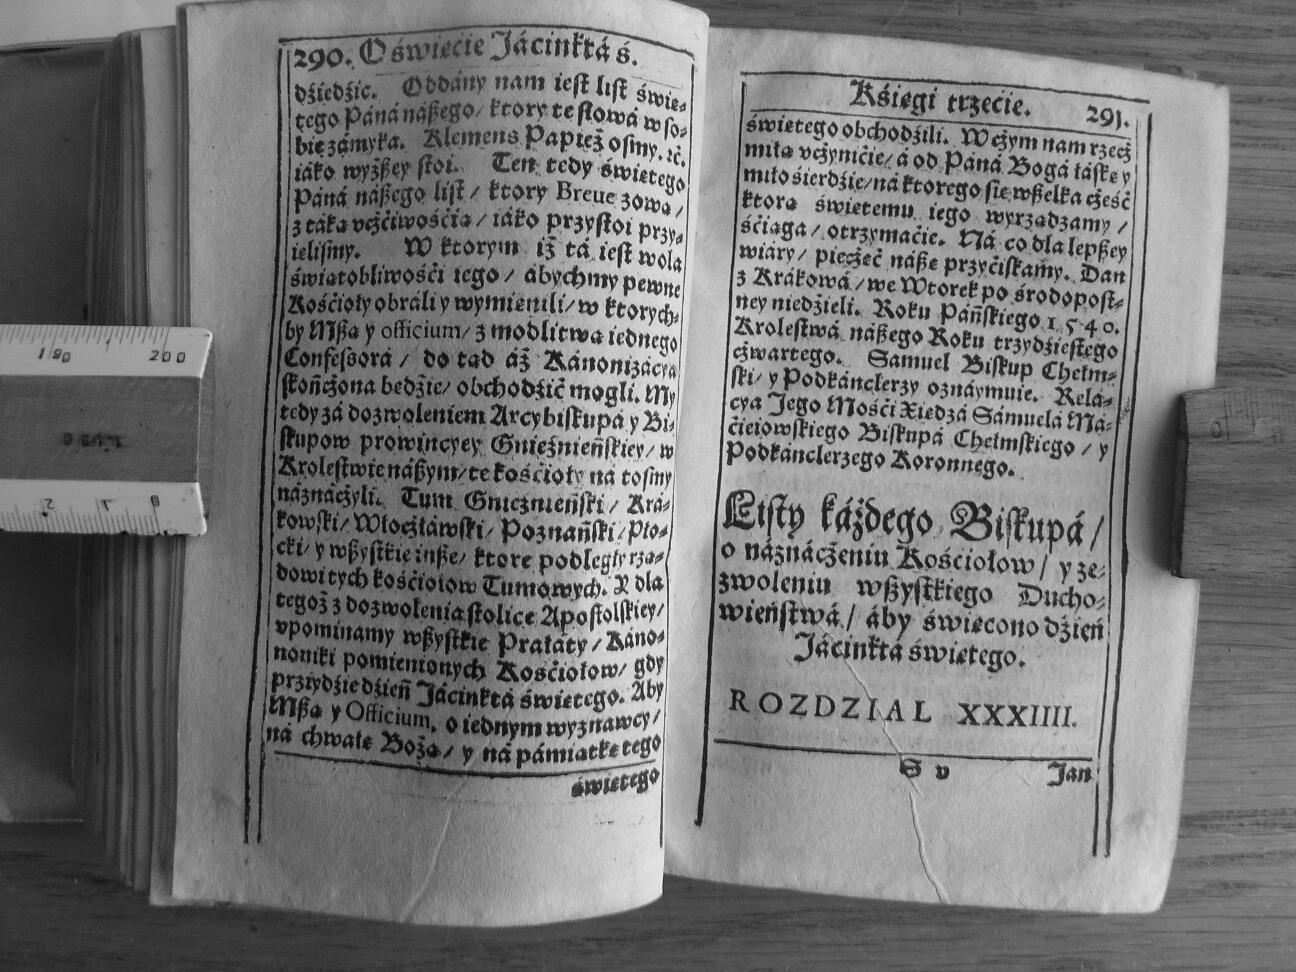 290. O świećie Jácinktá ś.
dźiedźic. Oddány nam iest list świe-
tego Páná nászego/ ktory te słowá w so-
bie zámyka. Klemens Papież osmy. ꝛc̃.
iáko wyższey stoi. Ten tedy świętego
Páná nászego list/ ktory Breue zową/
z táką vcżćiwośćią/ iáko przystoi przy-
ielismy. W ktorym iż tá iest wola
świątobliwośći iego/ ábychmy pewne
Kośćioły obráli y wymienili/ w ktorych-
by Msza y officium/ z modlitwą iednego
Confessorá/ do tąd áż Kánonizácya
skończona będzie/ obchodźić mogli. My
tedy zá dozwoleniem Arcybiskupá y Bi-
skupow prowincyey Gnieźnieńskiey/ w
Krolestwie nászym/ te kośćioły ná to smy
náznáczyli. Tum Gnieznieński/ Krá-
kowski/ Włocżłáwski/ Poznański/ Pło-
cki/ y wszystkie insze/ ktore podległy rzą-
dowi tych kośćiołow Tumowych. Y dla
tegoż z dozwolenia stolice Apostolskiey/
vpominamy wszystkie Prałaty/ Káno-
noniki pomienionych Kośćiołow/ gdy
przyidzie dźień Jácinktá świętego. Aby
Mszą y Officium, o iednym wyznawcy/
ná chwałę Bożą/ y ná pámiątkę tego
świętego
Kśięgi trzećie. 291.
świętego obchodźili. W czym nam rzecż
miłą vcżynićie/ á od Páná Bogá łáskę y
miłośierdźie/ ná ktorego się wszelka cżeść
ktorą świętemu iego wyrządzamy/
śćiąga/ otrzymaćie. Ná co dla lepszey
wiáry/ pieczęć nászę przyćiskamy. Dan
z Krákowá/ we Wtorek po środopost-
ney niedźieli. Roku Páńskiego 1540.
Krolestwá nászego Roku trzydźiestego
czwartego. Samuel Biskup Chełm-
ski/ y Podkánclerzy oznáymuie. Relá-
cya Jego Mośći Xiędzá Sámuelá Má-
ćieiowskiego Biskupá Chełmskiego/ y
Podkánclerzego Koronnego.
Listy káżdego Biskupá/
o náznácżeniu Kośćiołow/ y ze-
zwoleniu wszystkiego Ducho-
wieństwá/ áby święcono dźień
Jácinktá świętego.
ROZDZIAL XXXIIII.
S v Jan
190 200
2 1 0